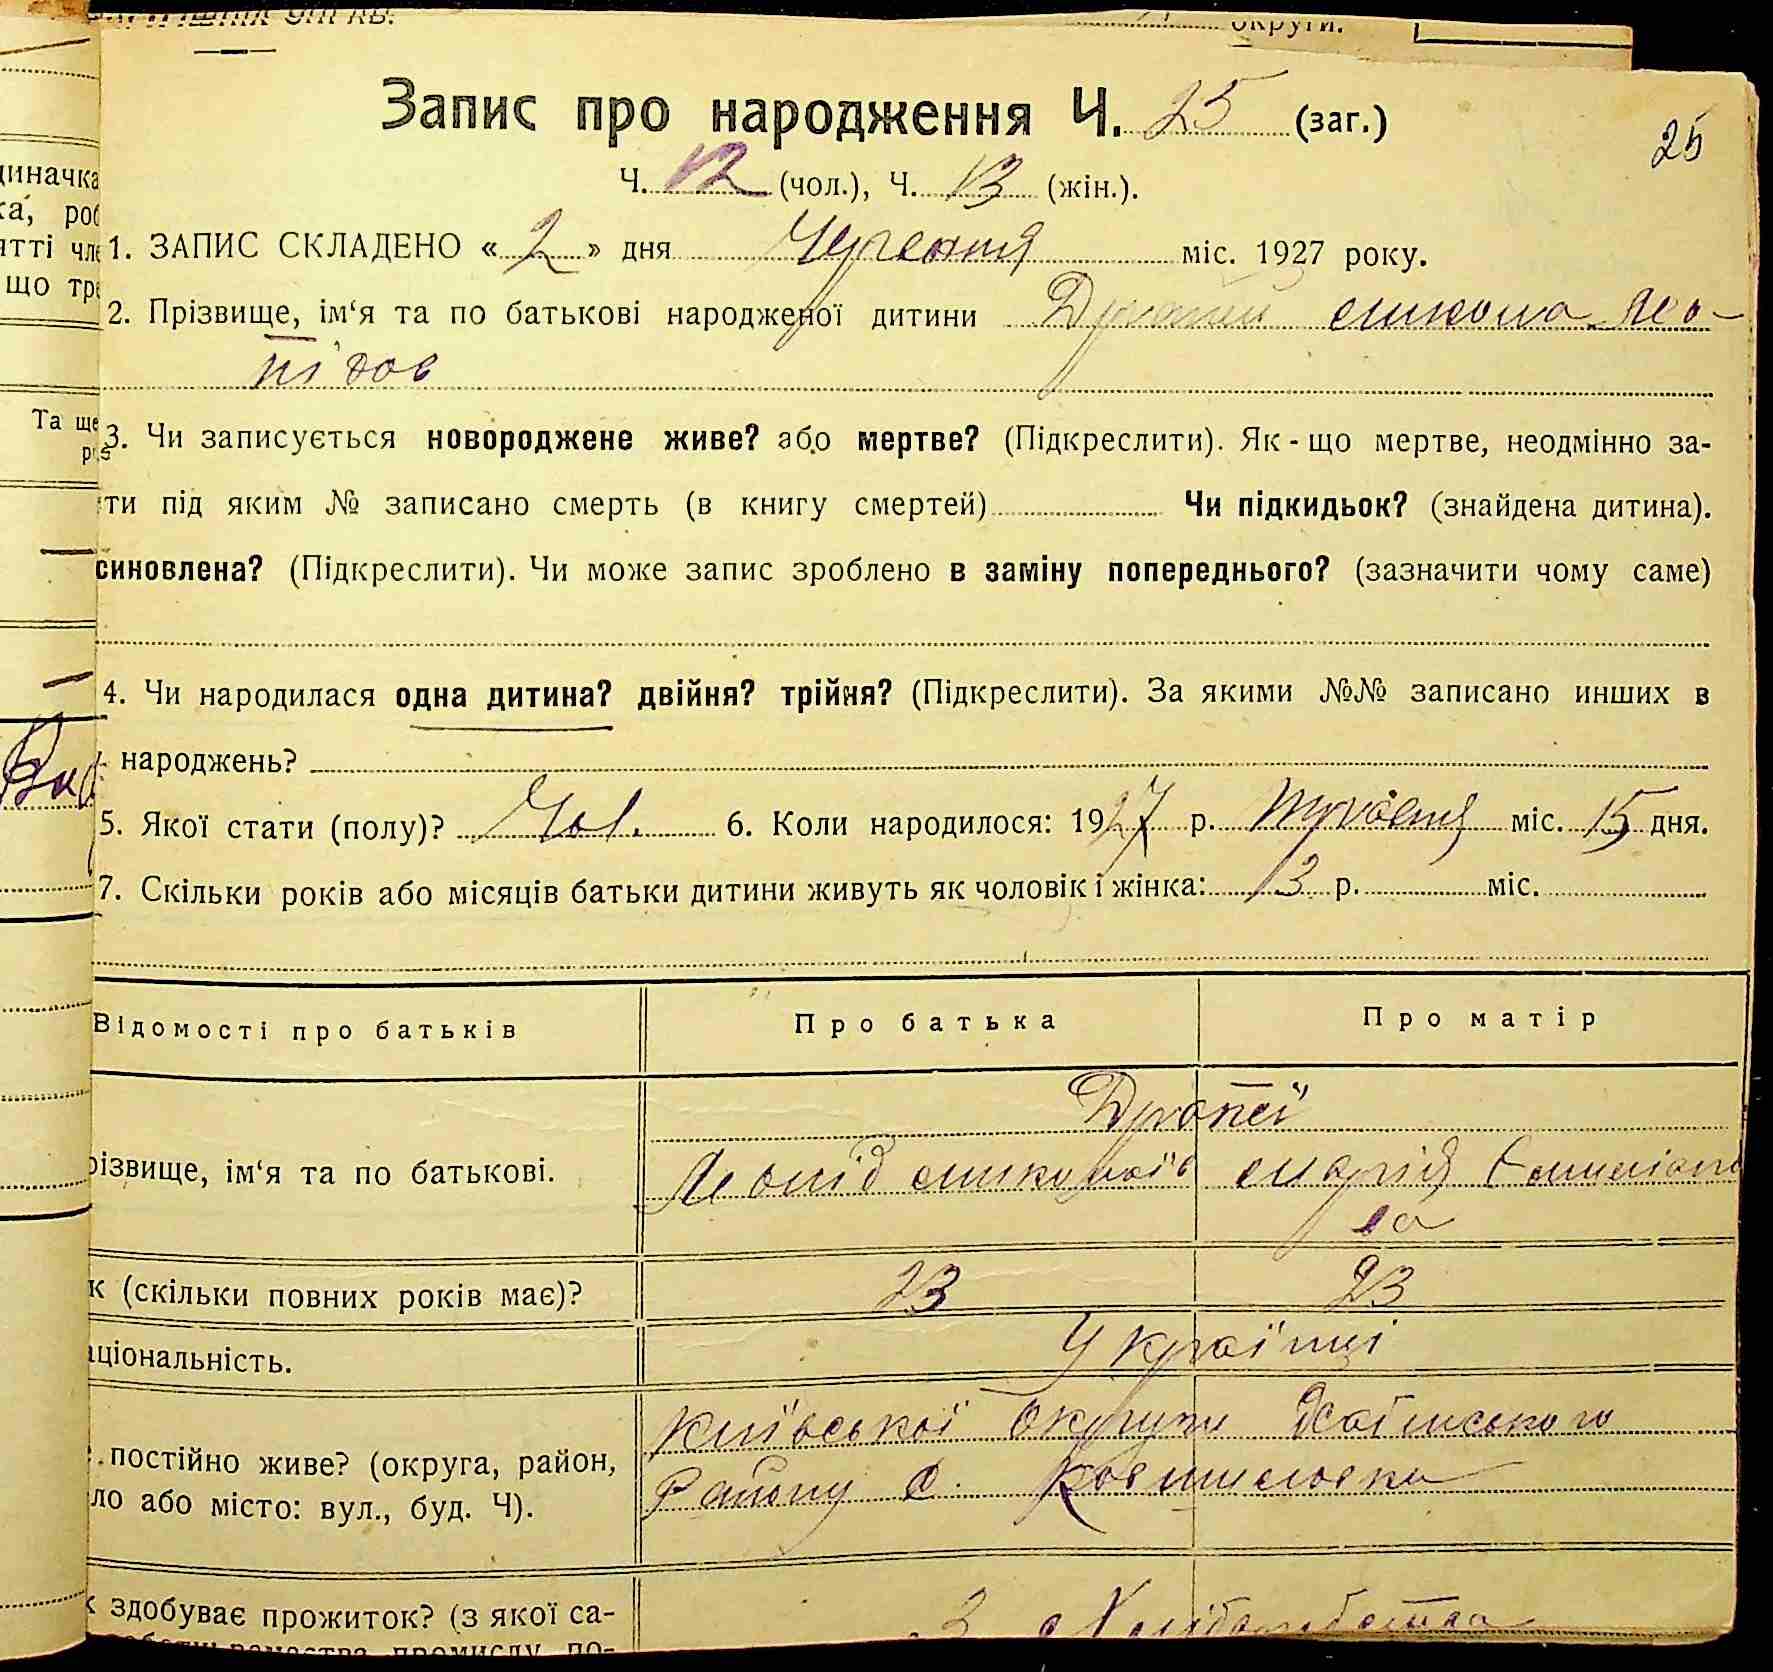 округи.
Запис про народження Ч. 25 (заг.)
25
Ч. 12 (чол.), Ч. 13 (жін.).
1. ЗАПИС СКЛАДЕНО « 2 » дня Червня міс. 1927 року.
2. Прізвище, ім‘я та по батькові народженої дитини Микола Лео-
нідов
3. Чи записується новороджене живе? або мертве? (Підкреслити). Як-що мертве, неодмінно за-
ти під яким № записано смерть (в книгу смертей) Чи підкидьок? (знайдена дитина).
синовлена? (Підкреслити). Чи може запис зроблено в заміну попереднього? (зазначити чому саме)
4. Чи народилася одна дитина? двійня? трійня? (Підкреслити). За якими №№ записано инших в
народжень?
5. Якої стати (полу)? Чол. 6. Коли народилося: 1927 р. Травня міс. 15 дня.
7. Скільки років або місяців батьки дитини живуть як чоловік і жінка: 3 р. міс.
Відомості про батьків Про батька Про матір
Драпеї
різвище, ім‘я та по батькові. Леонід Миколаїв Марія Омеляно
ва
к (скільки повних років має)? 23 23
аціональність. Українці
Київської Округи
постійно живе? (округа, район, Району С. Ковшиловка
ло або місто: вул., буд. Ч).
к здобуває прожиток? (з якої са- З Хліборобства